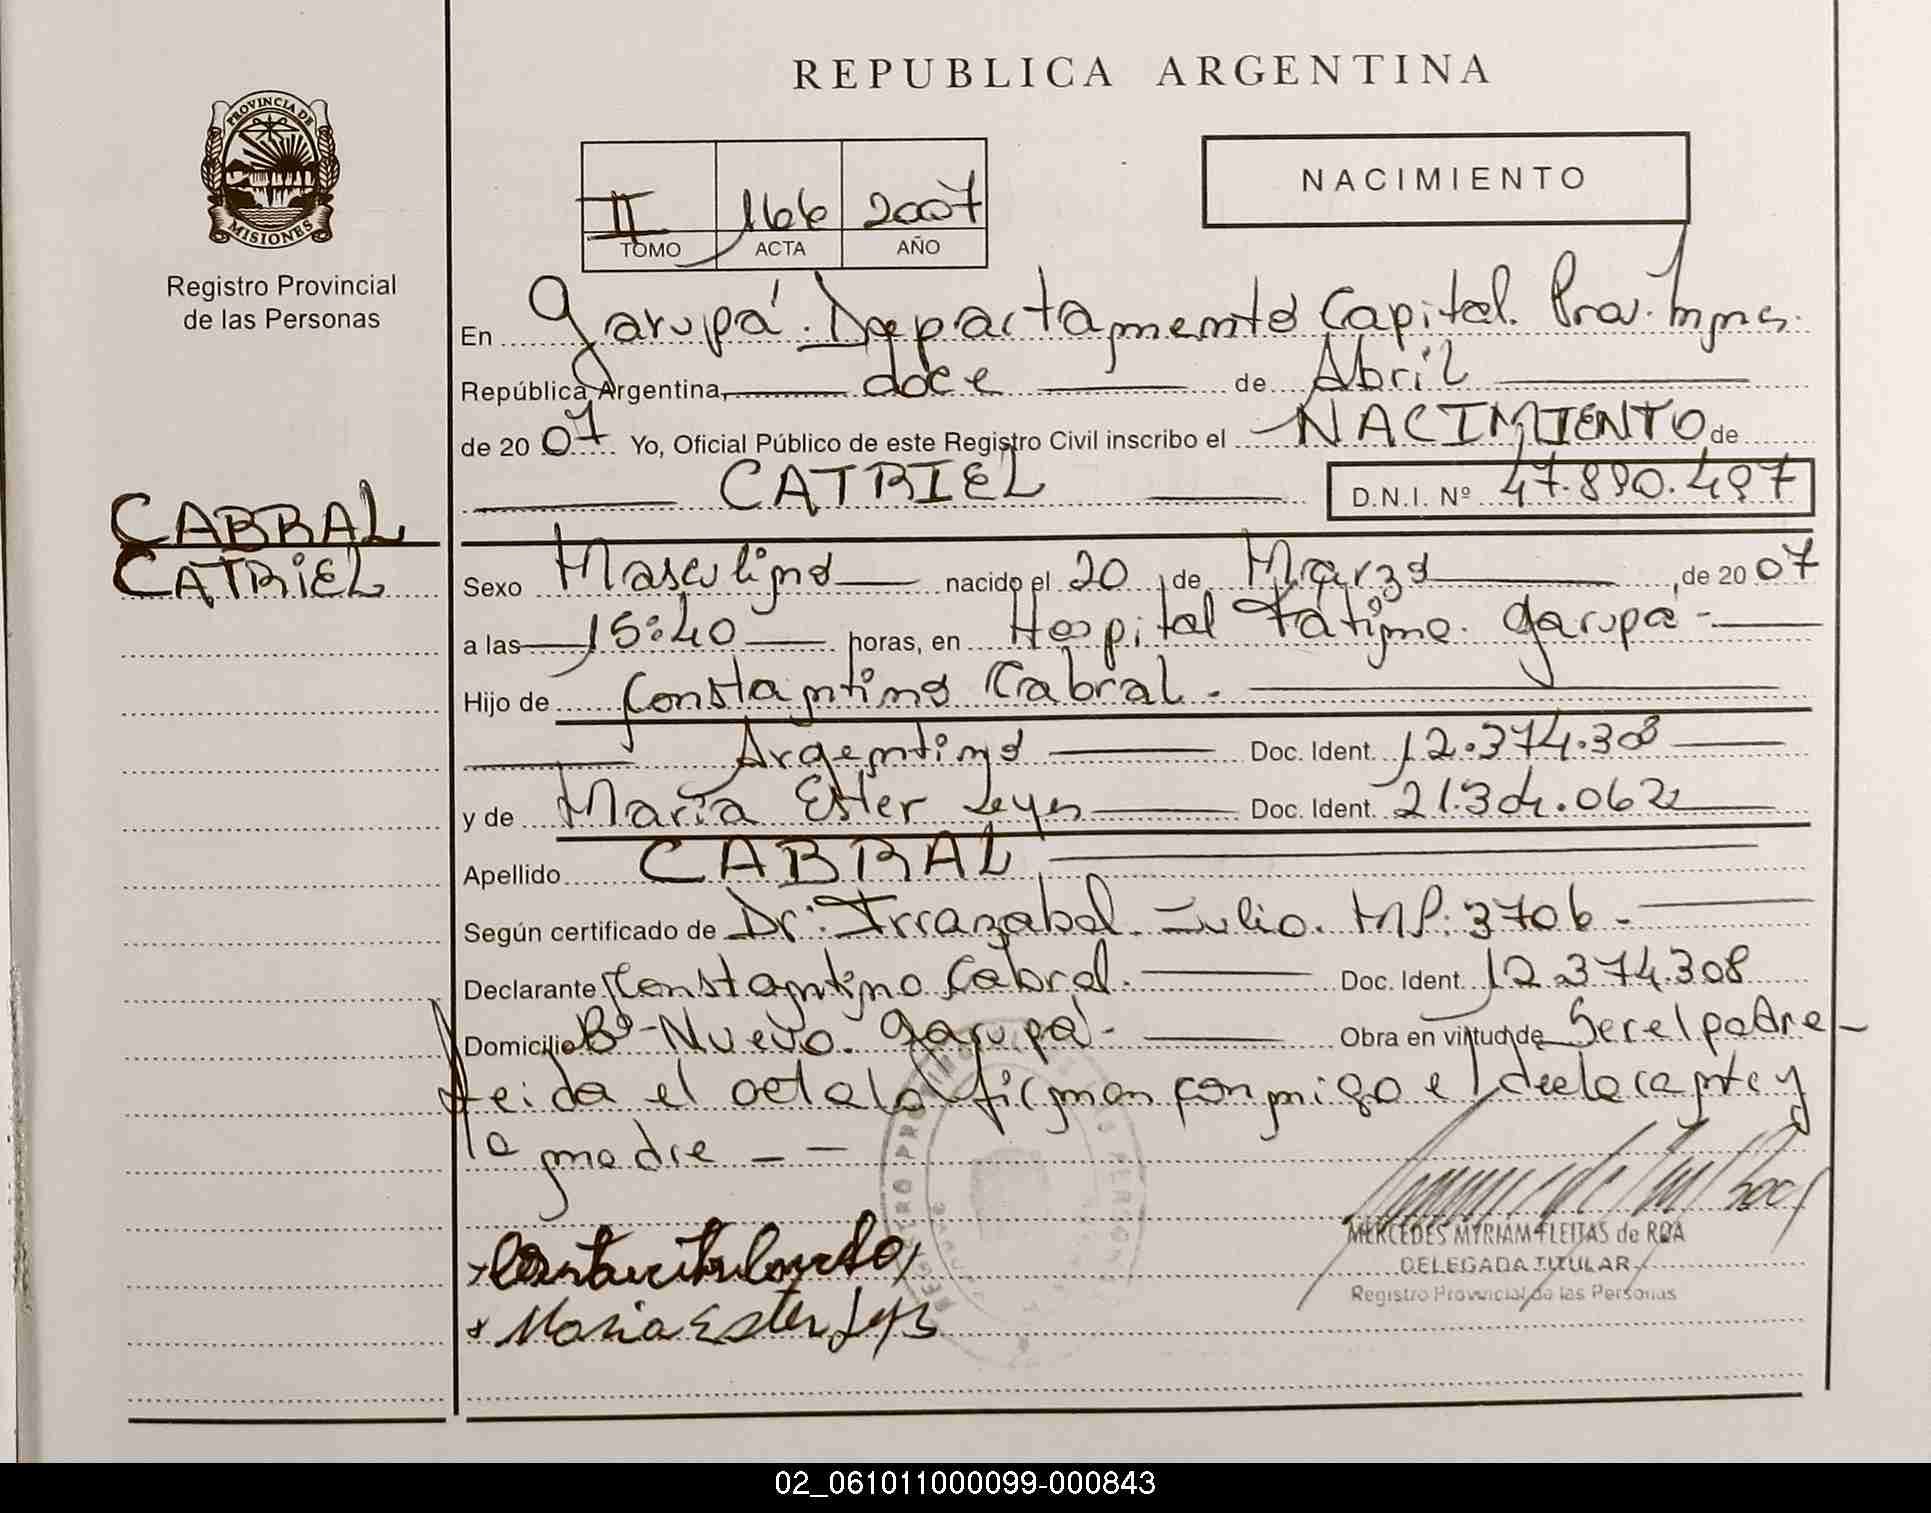 REPUBLICA ARGENTINA
PROVINCIA DE
MISIONES
Registro Provincial
de las Personas
II 166 2007
TOMO ACTA AÑO
NACIMIENTO
En Garupá. Departamento Capital. Prov. Mnes.
República Argentina, doce de Abril
de 2007 Yo, Oficial Público de este Registro Civil inscribo el NACIMIENTO de
CATRIEL D.N.I. Nº 47.890.497
CABRAL
CATRIEL
Sexo Masculino nacido el 20 de Marzo, de 2007
a las 15:40 horas, en Hospital Fátima. Garupá -
Hijo de Constantino Cabral. -
Argentino Doc. Ident. 12.374.308
y de María Ester Leyes Doc. Ident. 21.304.062
Apellido CABRAL
Según certificado de Dr: Irrazabal. Julio. MP: 3706 -
Declarante Constantino Cabral. Doc. Ident. 12.374.308
Domicilio Bº Nuevo. Garupá - Obra en virtud de Ser el padre -
Leida el acta la firman conmigo el declarante y
la madre - -
Maria Ester
MERCEDES MYRIAM FLEITAS de ROA
DELEGADA TITULAR
Registro Provincial de las Personas
02_061011000099-000843